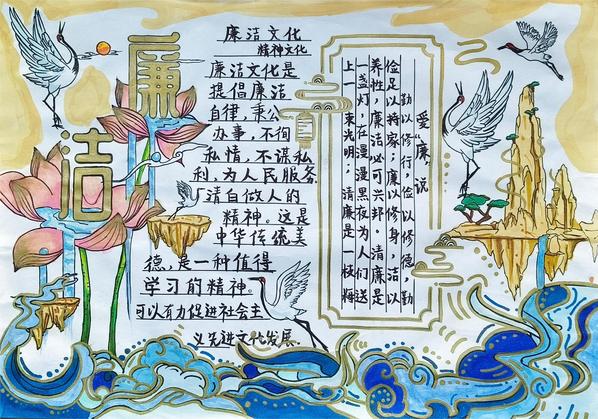 廉
洁
廉洁文化
精神文化
廉洁文化是
提倡廉洁
自律，秉公
办事，不徇
私情，不谋私
利，为人民服务
清白做人的
精神。这是
中华传统美
德，是一种值得
学习的精神。
可以有力促进社会主
义先进文化发展.
爱“廉”说
勤以修行，俭以修德，勤
俭足以持家；廉以修身，洁以
养性，廉洁必可兴邦。清廉是
一盏灯，在漫漫黑夜为人们送
上一束光明；清廉是一枝梅